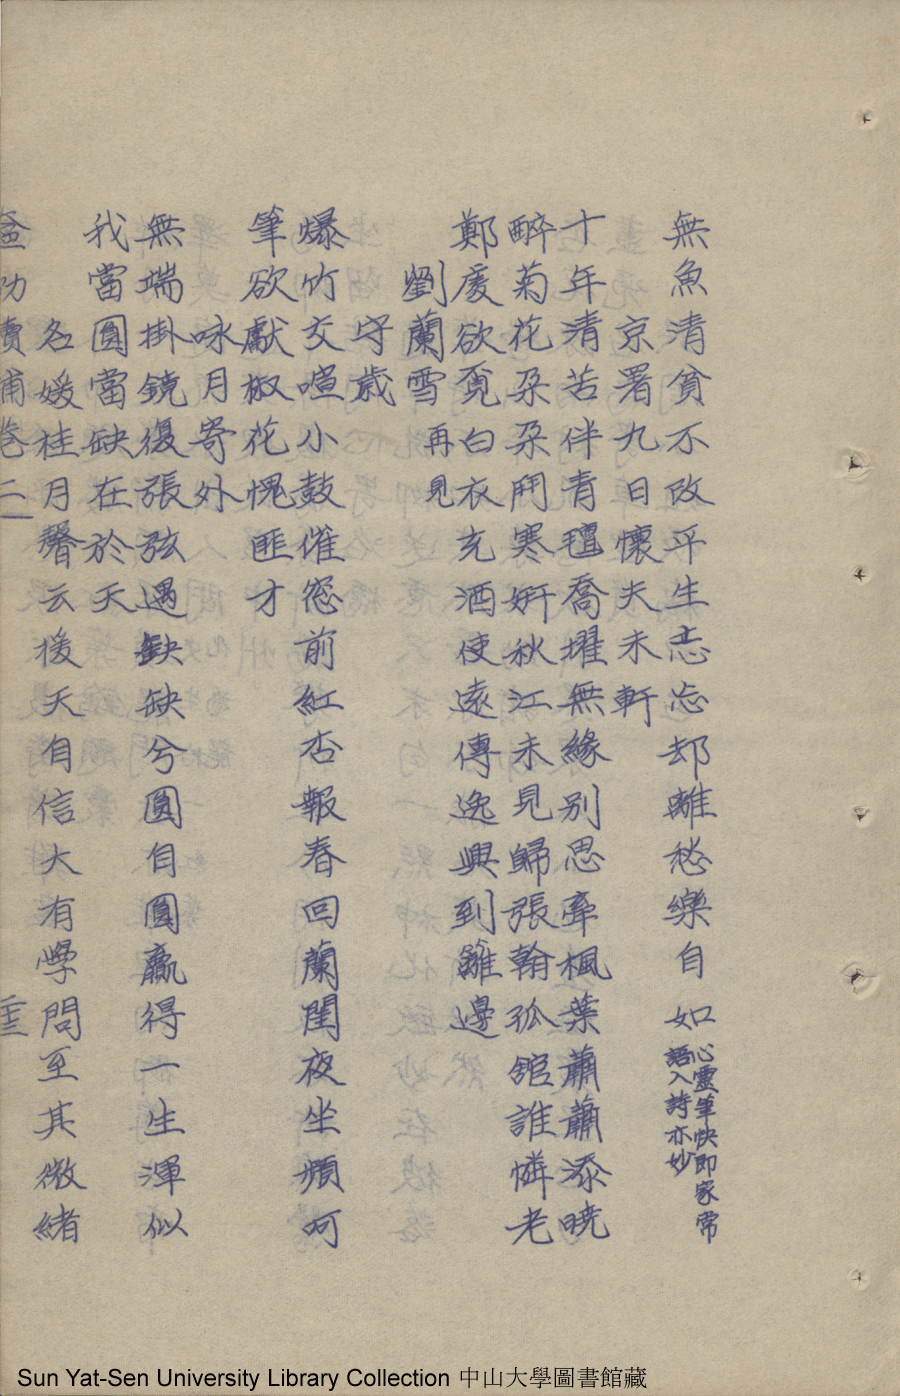 無魚清貧不改平生志忘却離愁樂自如心靈筆快即家常
語入詩亦妙
京署九日懷夫未軒
十年清苦伴青氊喬擢無緣别思牽楓葉蕭蕭添曉
醉菊花朵朵鬥寒妍秋江未見歸張翰孤舘誰憐老
鄭虔欲覓白衣充酒使遠傳逸興到籬邊
劉蘭雪再見
守歲
爆竹交喧小鼓催窓前紅杏報春回蘭閨夜坐頻呵
筆欲獻椒花愧匪才
咏月寄外
無端掛鏡復張弦遇缺缺兮圓自圓贏得一生渾似
我當圓當缺在於天
名媛桂月馨云後天自信大有學問至其微緒
卷二
Sun Yat-Sen University Library Collection 中山大學圖書館藏